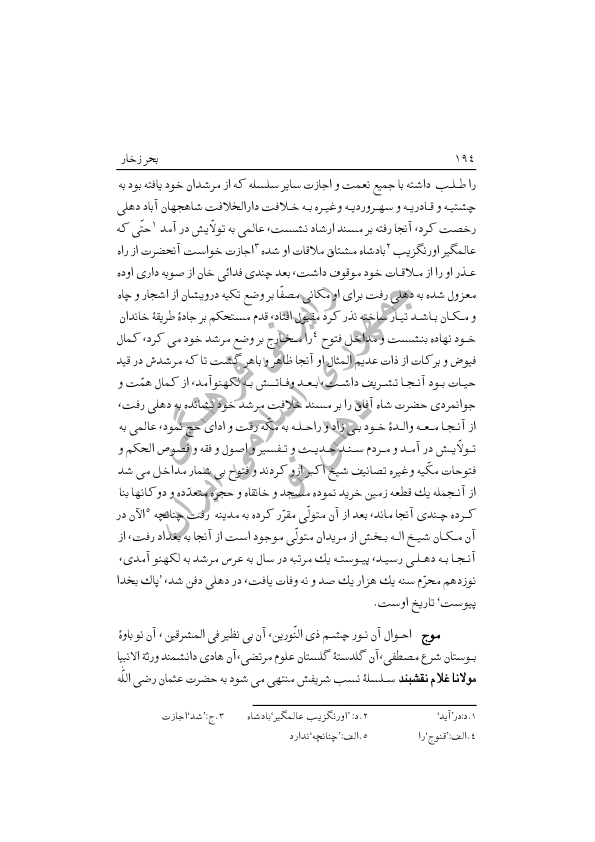 ۱۹٤ بحر زخار
را طلب داشته با جمیع نعمت و اجازت سایر سلسله که از مرشدان خود یافته بود به
چشتیه و قادریه و سهروردیه وغیره به خلافت دارالخلافت شاهجهان آباد دهلی
رخصت کرد، آنجا رفته بر مسند ارشاد نشست، عالمی به تولّایش در آمد ۱ حتّی که
عالمگیر اورنگزیب ۲ بادشاه مشتاق ملاقات او شده ۳ اجازت خواست آنحضرت از راه
عذر او را از ملاقات خود موقوف داشت، بعد چندی فدائی خان از صوبه داری اوده
معزول شده به دهلی رفت برای او مکانی مصفّا بر وضع تکیه درویشان از اشجار و چاه
و مکان باشد تیار ساخته نذر کرد مقبول افتاد، قدم مستحکم بر جادهٔ طریقهٔ خاندان
خود نهاده بنشست و مداخل فتوح ٤ را مخارج بر وضع مرشد خود می کرد، کمال
فیوض و برکات از ذات عدیم المثال او آنجا ظاهر و باهر گشت تا که مرشدش در قید
حیات بود آنجا تشریف داشت، بعد وفاتش به لکهنو آمد، از کمال همّت و
جوانمردی حضرت شاه آفاق را بر مسند خلافت مرشد خود نشانده به دهلی رفت،
از آنجا معه والدهٔ خود بی زاد و راحله به مکّه رفت و ادای حج نمود، عالمی به
تولّایش در آمد و مردم سند حدیث و تفسیر و اصول و فقه و فصوص الحکم و
فتوحات مکّیه وغیره تصانیف شیخ اکبر ازو کردند و فتوح بی شمار مداخل می شد
از آنجمله یك قطعه زمین خرید نموده مسجد و خانقاه و حجره متعدّده و دوکانها بنا
کرده چندی آنجا ماند، بعد از آن متولّی مقرّر کرده به مدینه رفت چنانچه ۵ الآن در
آن مکان شیخ اله بخش از مریدان متولّی موجود است از آنجا به بغداد رفت، از
آنجا به دهلی رسید، پیوسته یك مرتبه در سال به عرس مرشد به لکهنو آمدی،
نوزدهم محرّم سنه یك هزار یك صد و نه وفات یافت، در دهلی دفن شد، ’پاك بخدا
پیوست‘ تاریخ اوست.
موج احوال آن نور چشم ذی النّورین، آن بی نظیر فی المشرقین ، آن نو باوهٔ
بوستان شرع مصطفی، آن گلدستهٔ گلستان علوم مرتضی، آن هادی دانشمند ورثة الانبیا
مولانا غلام نقشبند سلسلهٔ نسب شریفش منتهی می شود به حضرت عثمان رضی الله
۱.د:در’آید‘ ۲.د:’اورنگزیب عالمگیر‘بادشاه ۳.ج:’شد‘اجازت
٤.الف:’قنوج‘را ۵.الف:’چنانچه‘ندارد
رایزنی فرهنگی
جمهوری اسلامی ایران
دهلی نو